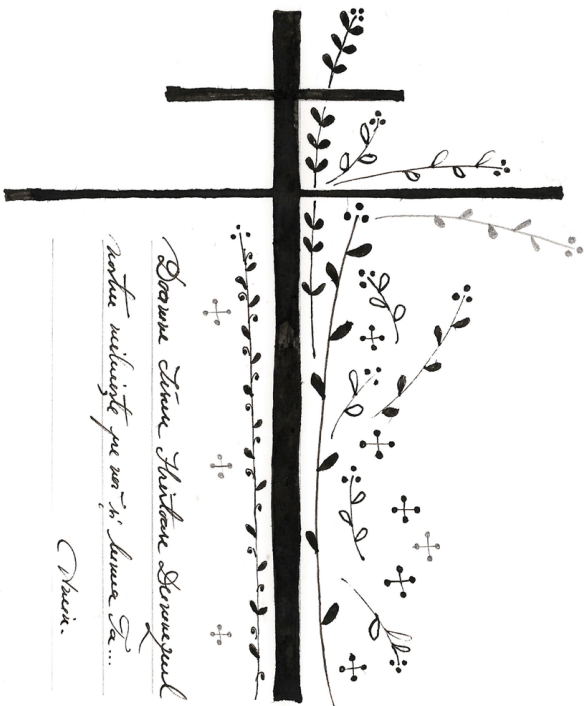 Doamne Iisuse Hristoase Dumnezeul
nostru miluiește pe noi și lumea Ta...
Amin.